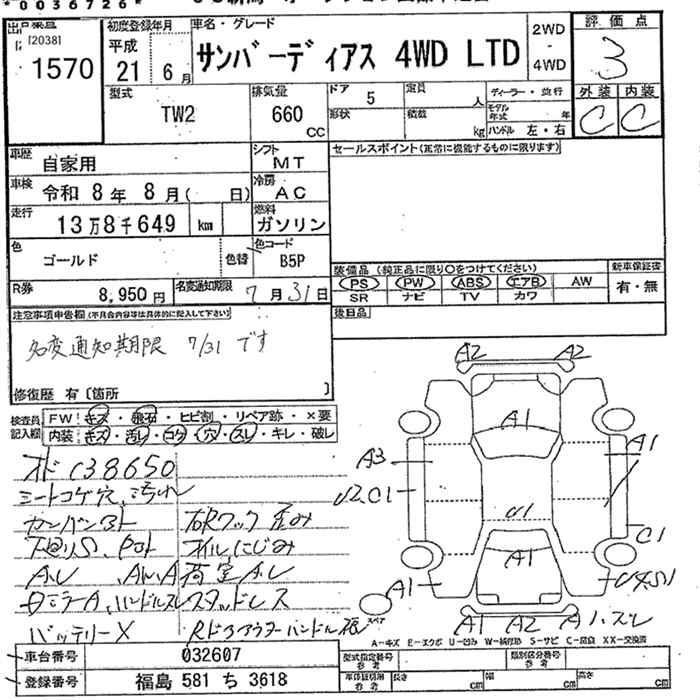 *0036726*
[2038]
1570
初度登録年月
平成
21年 6月
車名・グレード
サンバーディアス 4WD LTD
2WD
・
4WD
評価点
3
外装 内装
C C
型式
TW2
排気量
660
CC
ドア 5
形状
定員 人
積載 kg
ディーラー・並行
モデル年式 年
ハンドル 左・右
車歴
自家用
シフト
MT
セールスポイント(正常に機能するものに限ります)
車検
令和 8年 8月( 日)
冷房
AC
走行
13万8千649 km
燃料
ガソリン
色
ゴールド
色替
色コード
B5P
R券
8,950円
名変通知期限
7月31日
装備品(純正品に限り○をつけてください)
PS PW ABS エアB AW
SR ナビ TV カワ
新車保証書
有・無
後日品
注意事項申告欄(不具合内容等は具体的に記入して下さい)
名変通知期限 7/31 です
修復歴 有〔箇所 〕
検査員記入欄
FW キズ・飛石・ヒビ割・リペア跡・×要
内装 キズ・汚れ・コゲ・穴・スレ・キレ・破レ
オド 138650
シートコゲ穴、汚れ
オイルにじみ
荷室A.U
スタッドレス
バッテリーX
A2 A2
A1
A3
A1
U2C1
U1
C1
A1
A1
A1 A2 A1.スレ
スペア
A-キズ E-エクボ U-凹み W-補修跡 S-サビ C-腐食 XX-交換済
車台番号
032607
登録番号
福島 581 ち 3618
型式指定番号
参考
類別区分番号
参考
車体証明用
参考
長さ cm
幅 cm
高さ cm